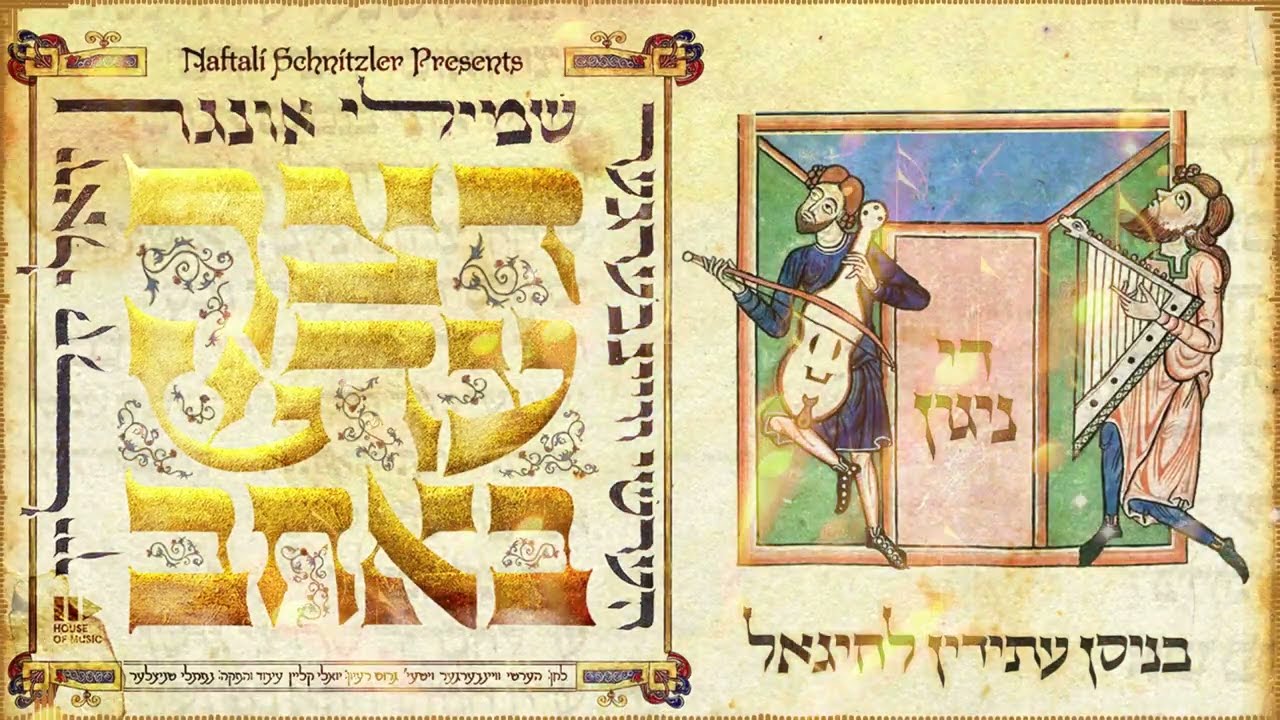 Naftali Schnitzler Presents
שמילי אונגר
הערשי וויינבערגער
יואלי קליין
דצך
עדש
באחב
HOUSE
OF MUSIC
לחן: הערשי וויינבערגער וישעי' גרוס רעיון: יואלי קליין עיבוד והפקה: נפתלי שניצלער
די
ניגון
בניסן עתידין להיגאל